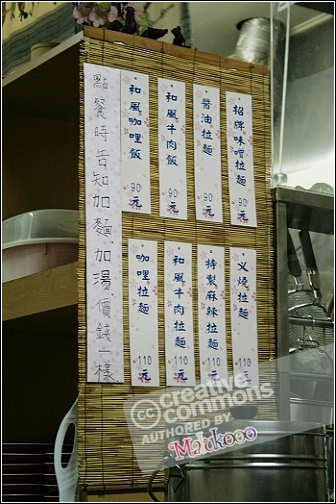 點餐時告知加麵.加湯.價錢一樣
和風咖哩飯 90元
和風牛肉飯 90元
醬油拉麵 90元
招牌味噌拉麵 90元
咖哩拉麵 110元
和風牛肉拉麵 110元
特製麻辣拉麵 110元
叉燒拉麵 110元
cc creative commons
AUTHORED BY
Maukooo